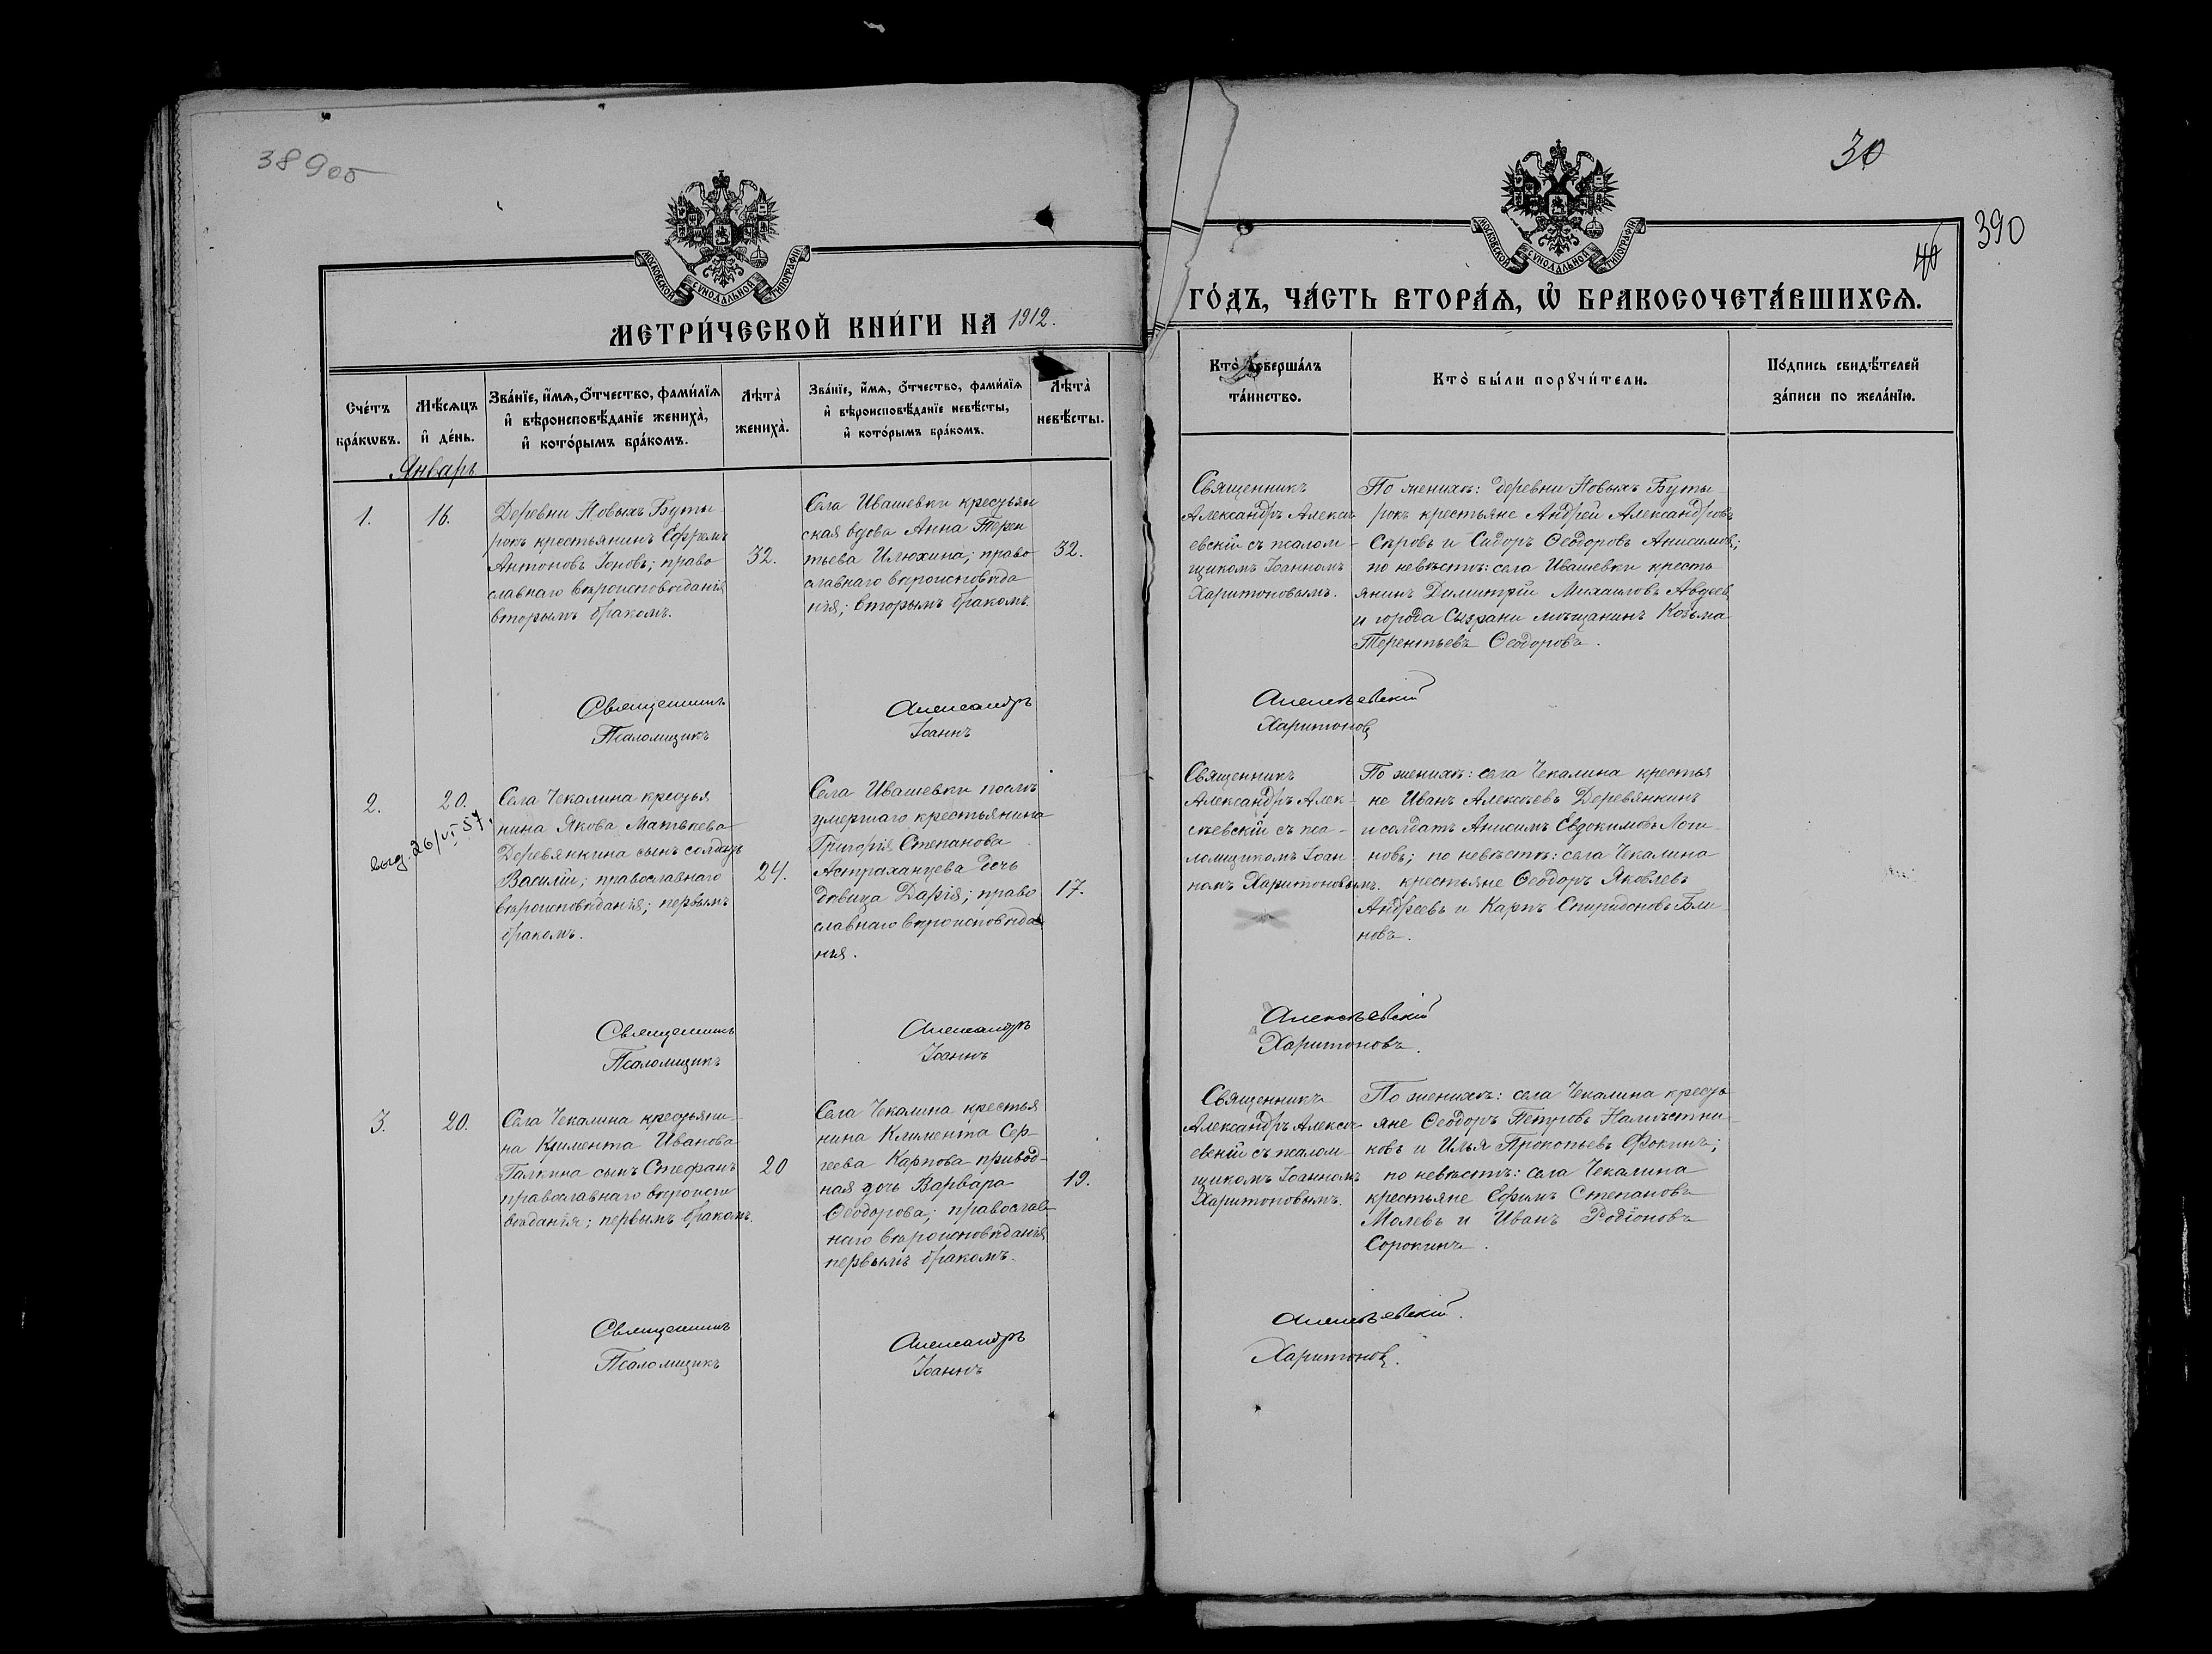 389об
30
390
40
МОСКОВСКОЙ СѴНОДАЛЬНОЙ ТИПОГРАФІИ
МОСКОВСКОЙ СѴНОДАЛЬНОЙ ТИПОГРАФІИ
МЕТРИ́ЧЕСКОЙ КНИ́ГИ НА 1912.
ГО́ДЪ, ЧА́СТЬ ВТОРА́Ѧ, Ѽ БРАКОСОЧЕТА́ВШИХСѦ.
Сче́тъ
бра́кѡвъ.
Мѣ́сѧцъ
и҆ де́нь.
Зва́нїе, и҆́мѧ, ѻ҆́тчество, фами́лїѧ
и҆ вѣроисповѣ́данїе жениха̀,
и҆ кото́рымъ бра́комъ.
Лѣ́та̀
жениха̀.
Зва́нїе, и҆́мѧ, ѻ҆́тчество, фами́лїѧ
и҆ вѣроисповѣ́данїе невѣ́сты,
и҆ кото́рымъ бра́комъ.
Лѣ́та̀
невѣ́сты.
Кто̀ соверша́лъ
та́инство.
Кто̀ бы́ли порꙋчи́тели.
По́дпись свидѣ́телей
за́писи по жела́нїю.
Январь
1.
16.
Деревни Новыхъ Буты-
рокъ крестьянинъ Ефремъ
Антоновъ Іоновъ; право
славнаго вѣроисповѣданія
вторымъ бракомъ.
32.
Села Ивашевки крестьян
ская вдова Анна Терен
тьева Илюхина; право
славнаго вѣроисповѣда
нія; вторымъ бракомъ.
32.
Священникъ
Александръ Алексѣ-
евскій съ псалом-
щикомъ Іоанномъ
Харитоновымъ.
По женихѣ: деревни Новыхъ Буты-
рокъ крестьяне Андрей Александровъ
Сѣровъ и Сидоръ Ѳеодоровъ Анисимовъ;
по невѣстѣ: села Ивашевки кресть
янинъ Димитрій Михаиловъ Авдеев
и города Сызрани мѣщанинъ Козьма
Терентьевъ Ѳеодоровъ.
Священникъ
Александръ
Алексѣевскій
Псаломщикъ
Іоаннъ
Харитоновъ
2.
20.
выд. 26/VI 57.
Села Чекалина крестья
нина Якова Матвѣева
Деревянкина сынъ солдатъ
Василій; православнаго
вѣроисповѣданія; первымъ
бракомъ.
24.
Села Ивашевки послѣ
умершаго крестьянина
Григорія Степанова
Астраханцева дочь
дѣвица Дарія; право
славнаго вѣроисповѣда
нія.
17.
Священникъ
Александръ Алек-
сѣевскій съ пса-
ломщикомъ Іоан
номъ Харитоновымъ.
По женихѣ: села Чекалина крестья
не Иванъ Алексѣевъ Деревянкинъ
и солдатъ Анисимъ Евдокимовъ Логи-
новъ; по невѣстѣ: села Чекалина
крестьяне Ѳеодоръ Яковлевъ
Андреевъ и Карпъ Спиридоновъ Бли-
новъ.
Священникъ
Александръ
Алексѣевскій
Псаломщикъ
Іоаннъ
Харитоновъ.
3.
20.
Села Чекалина крестьяни-
на Климента Иванова
Галкина сынъ Стефанъ
православнаго вѣроиспо
вѣданія; первымъ бракомъ.
20
Села Чекалина крестья
нина Климента Сер-
геева Карпова привод-
ная дочь Варвара
Ѳеодорова; православ
наго вѣроисповѣданія
первымъ бракомъ.
19.
Священникъ
Александръ Алексѣ-
евскій съ псалом-
щикомъ Іоанномъ
Харитоновымъ.
По женихѣ: села Чекалина кресть
яне Ѳеодоръ Петровъ Намѣстни-
ковъ и Илья Прокопьевъ Фокинъ;
по невѣстѣ: села Чекалина
крестьяне Ефимъ Степановъ
Молевъ и Иванъ Родіоновъ
Сорокинъ.
Священникъ
Александръ
Алексѣевскій.
Псаломщикъ
Іоаннъ
Харитоновъ.